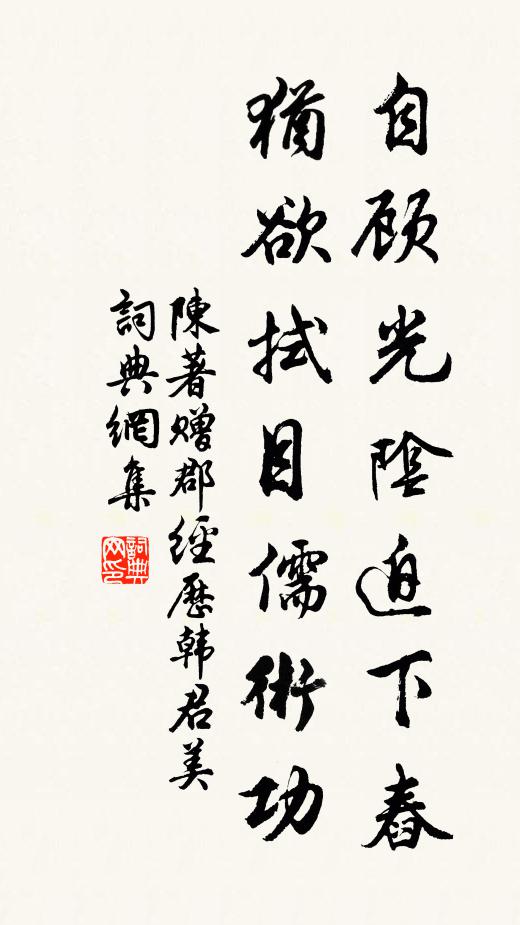 自顾光陰迫下舂
猶欲拭目儒術功
陳著赠郡經歷韩君美
詞典網集
詞典网印